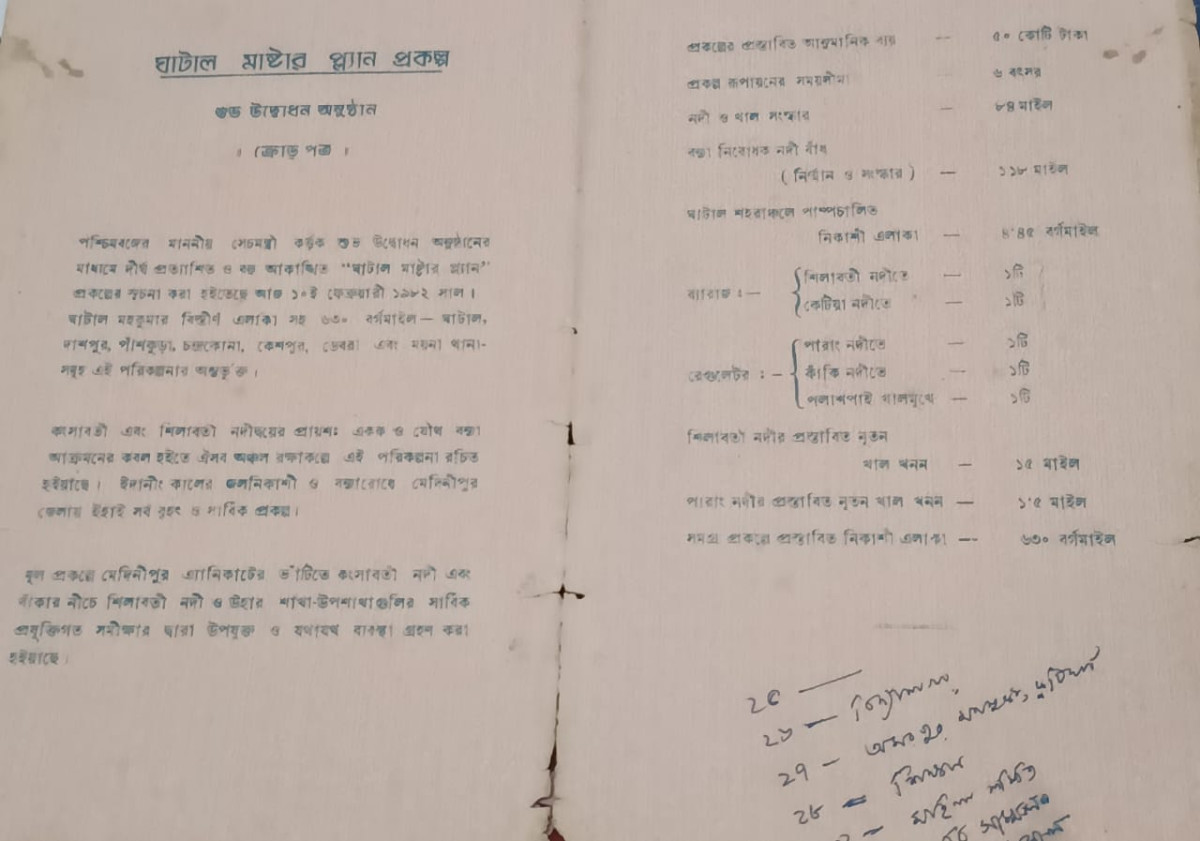 ঘাটাল মাষ্টার প্ল্যান প্রকল্প
শুভ উদ্বোধন অনুষ্ঠান
। ক্রোড় পত্র ।
পশ্চিমবঙ্গের মাননীয় সেচমন্ত্রী কর্তৃক শুভ উদ্বোধন অনুষ্ঠানের
মাধ্যমে দীর্ঘ প্রত্যাশিত ও বহু আকাঙ্খিত “ঘাটাল মাষ্টার প্ল্যান”
প্রকল্পের সূচনা করা হইতেছে আজ ১০ই ফেব্রুয়ারী ১৯৮২ সাল।
ঘাটাল মহকুমার বিস্তীর্ণ এলাকা সহ ৬৩০ বর্গমাইল— ঘাটাল,
দাশপুর, পাঁশকুড়া, চন্দ্রকোনা, কেশপুর, ডেবরা এবং ময়না থানা-
সমূহ এই পরিকল্পনার অন্তর্ভূক্ত।
কংসাবতী এবং শিলাবতী নদীদ্বয়ের প্রায়শঃ একক ও যৌথ বন্যা
আক্রমনের কবল হইতে ঐসব অঞ্চল রক্ষাকল্পে এই পরিকল্পনা রচিত
হইয়াছে। ইদানীং কালের জলনিকাশী ও বন্যারোধে মেদিনীপুর
জেলায় ইহাই সর্ব বৃহৎ ও সার্বিক প্রকল্প।
মূল প্রকল্পে মেদিনীপুর এ্যানিকাটের ভাঁটিতে কংসাবতী নদী এবং
বাঁকার নীচে শিলাবতী নদী ও উহার শাখা-উপশাখাগুলির সার্বিক
প্রযুক্তিগত সমীক্ষার দ্বারা উপযুক্ত ও যথাযথ ব্যবস্থা গ্রহণ করা
হইয়াছে।
প্রকল্পের প্রস্তাবিত আনুমানিক ব্যয় — ৫০ কোটি টাকা
প্রকল্প রূপায়নের সময়সীমা ৬ বৎসর
নদী ও খাল সংস্কার — ৮৪ মাইল
বন্যা নিরোধক নদী বাঁধ
( নির্মান ও সংস্কার ) — ১১৮ মাইল
ঘাটাল শহরাঞ্চলে পাম্পচালিত
নিকাশী এলাকা — ৪'৪৫ বর্গমাইল
ব্যারাজ :— শিলাবতী নদীতে — ১টি
কেটিয়া নদীতে — ১টি
রেগুলেটর :— পারাং নদীতে — ১টি
কাঁকি নদীতে — ১টি
পলাশপাই খালমুখে — ১টি
শিলাবতী নদীর প্রস্তাবিত নূতন
খাল খনন — ১৫ মাইল
পারাং নদীর প্রস্তাবিত নূতন খাল খনন — ১'৫ মাইল
সমগ্র প্রকল্পে প্রস্তাবিত নিকাশী এলাকা — ৬৩০ বর্গমাইল
২৫ —
২৬ —
২৭ —
২৮ —